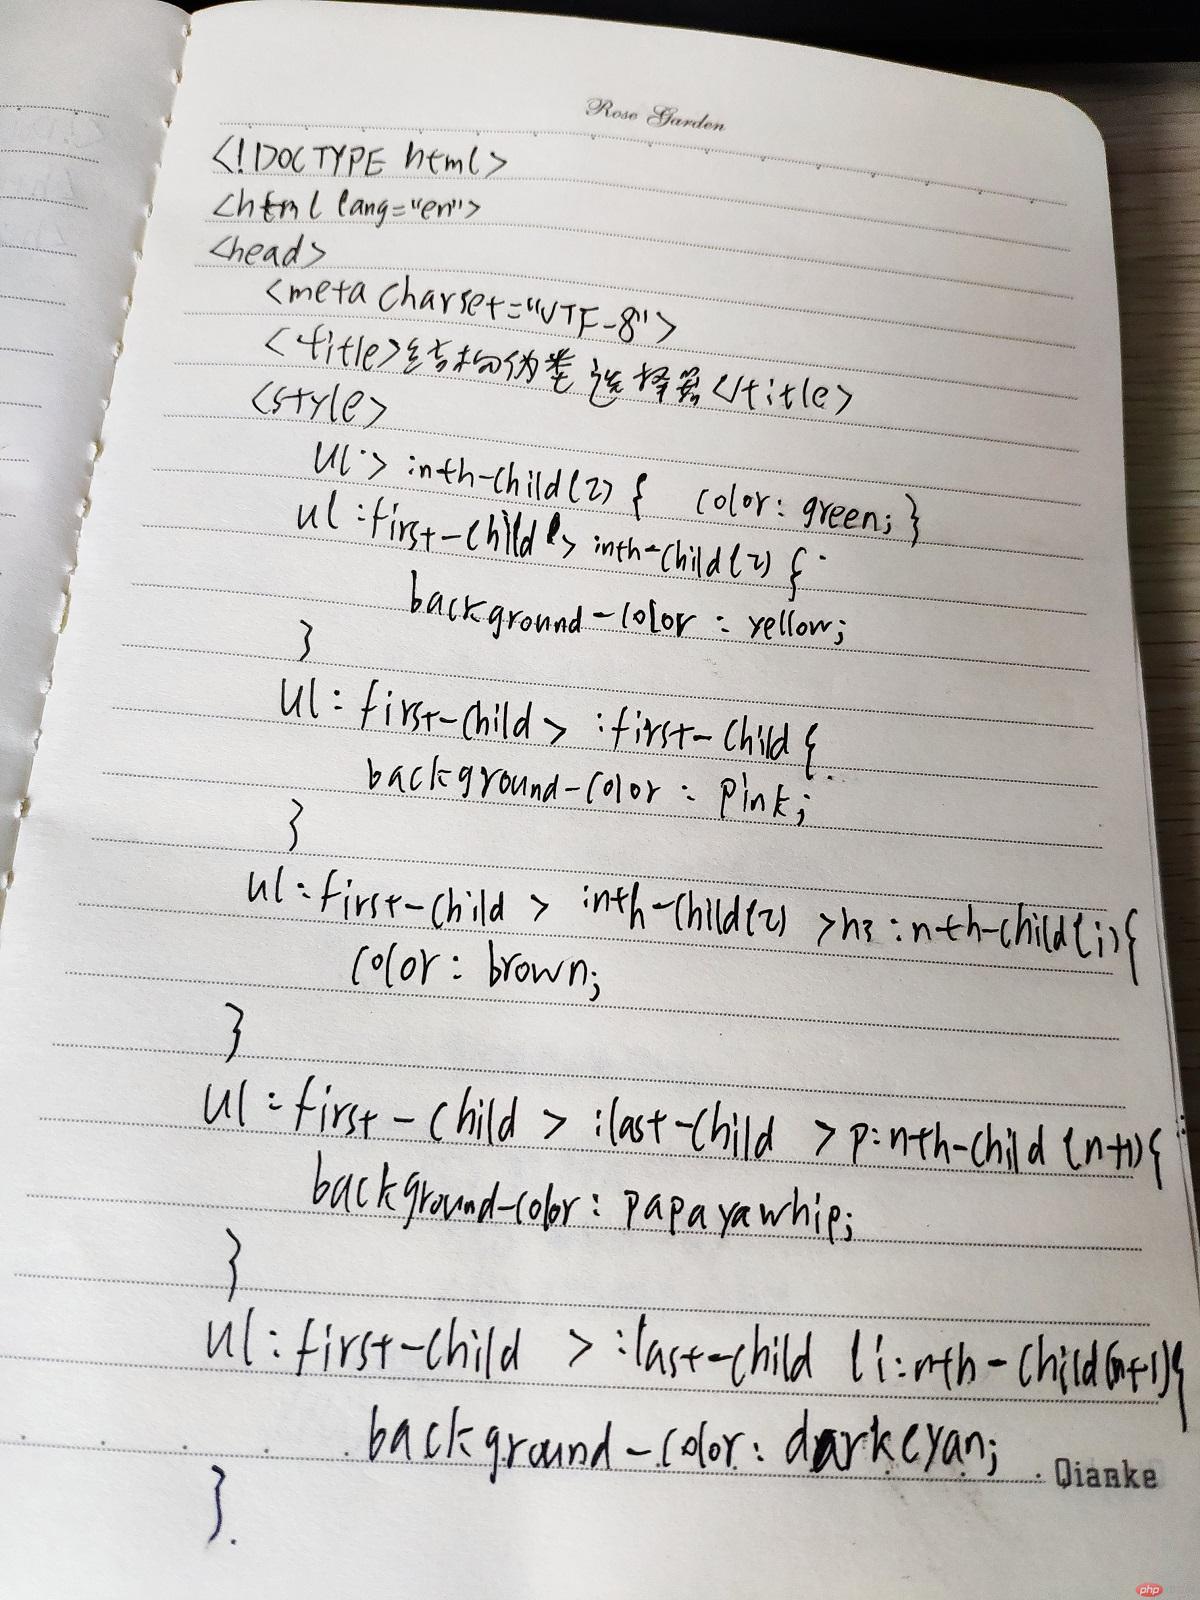 Rose Garden
<!DOCTYPE html>
<html lang="en">
<head>
<meta charset="UTF-8">
<title>结构伪类选择器</title>
<style>
ul > :nth-child(2) { color: green; }
ul :first-child > :nth-child(2) {
background-color : yellow;
}
ul : first-child > :first-child {
background-color : pink;
}
ul : first-child > :nth-child(2) >h3 :nth-child(1){
color : brown;
}
ul : first-child > :last-child > p:nth-child (n+1){
background-color : papayawhip;
}
ul : first-child > :last-child li:nth-child(n+1){
background-color : darkcyan;
}
Qianke
php